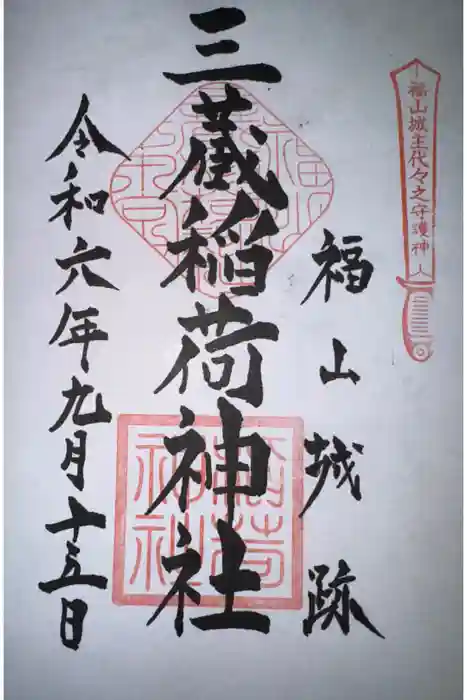 福山城主代々之守護神
福山城跡
三蔵稲荷神社
令和六年九月十五日
稲荷
神社